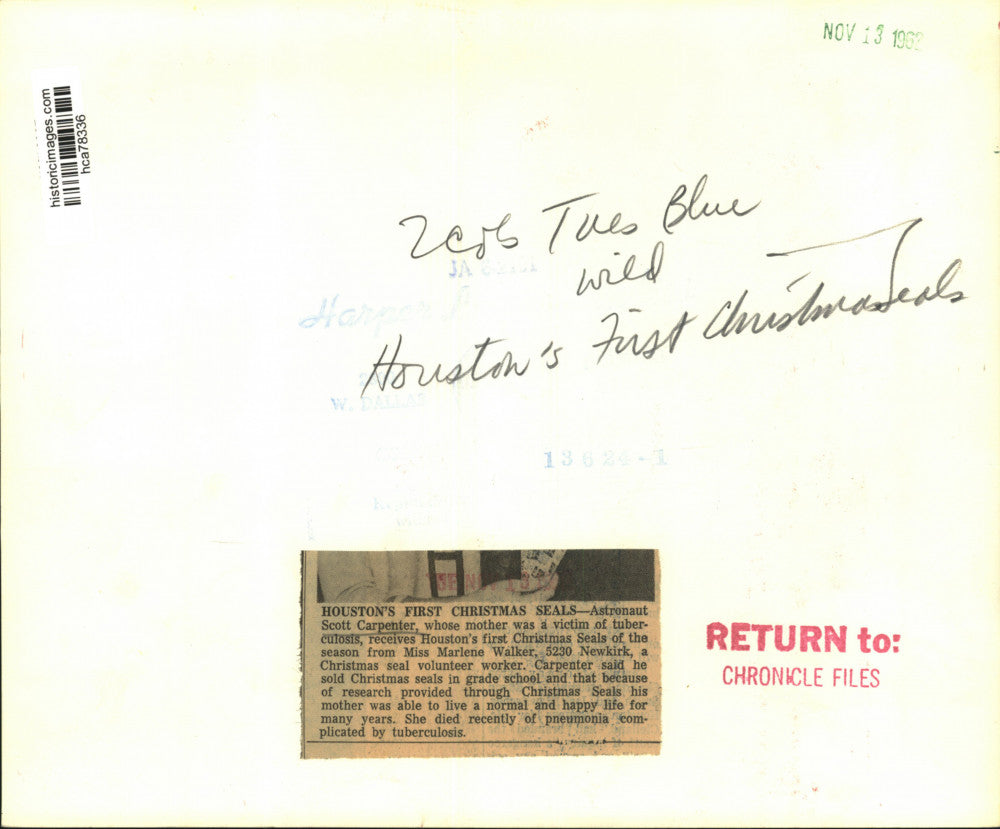 NOV 13 1962
historicimages.com
hca78336
2 cols Tues Blue
wild
Houston's First Christmas Seals
Harper
W. DALLAS
13624-1
HOUSTON'S FIRST CHRISTMAS SEALS—Astronaut
Scott Carpenter, whose mother was a victim of tuber-
culosis, receives Houston's first Christmas Seals of the
season from Miss Marlene Walker, 5230 Newkirk, a
Christmas seal volunteer worker. Carpenter said he
sold Christmas seals in grade school and that because
of research provided through Christmas Seals his
mother was able to live a normal and happy life for
many years. She died recently of pneumonia com-
plicated by tuberculosis.
RETURN to:
CHRONICLE FILES